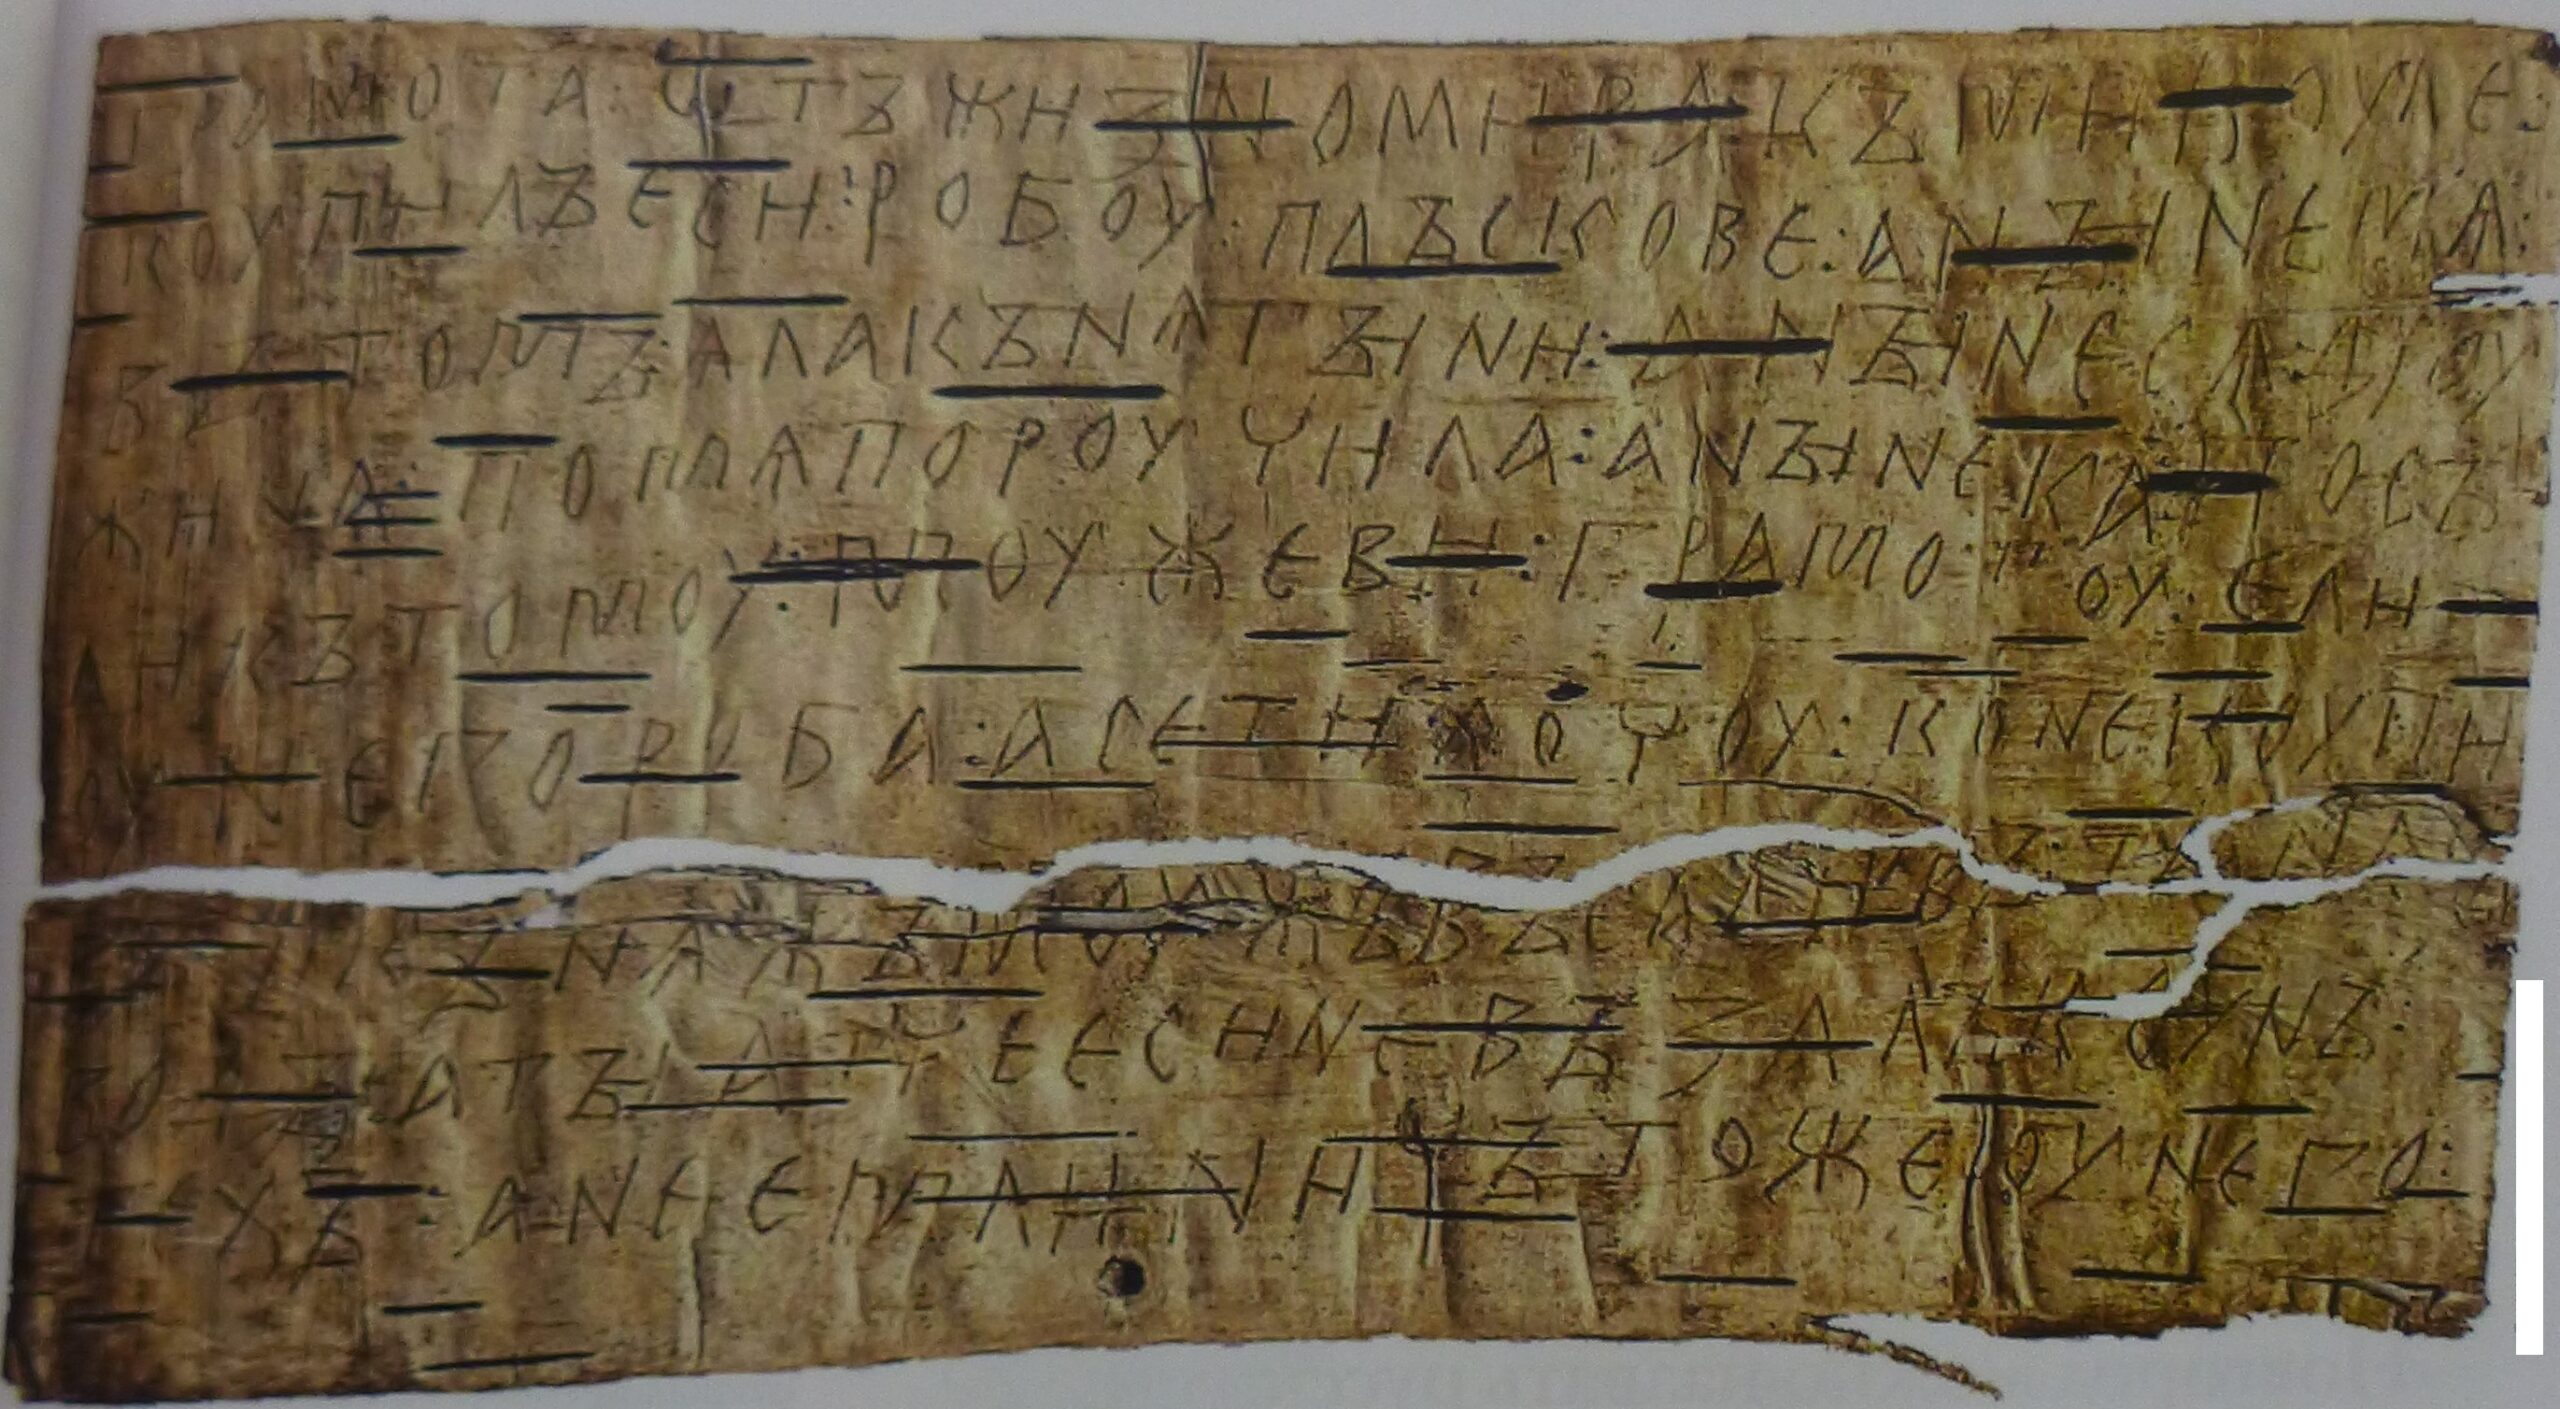 грамота : ѡтъ жизномира : къ микоуле :
коупилъ еси : робоу : плъскове : а нъıне мѧ :
въ томъ : ѧла кънѧгъıни : а нъıне сѧ дроу
жина : по мѧ пороучила : а нъıне ка посъ
ли къ томоу : моужеви : грамотоу : ели
оу него роба : а се ти хочоу : коне коупи
въ : и кънѧжъ моужъ въсадивъ : та на съ
водъı : а тъı атче еси не възалъ коунъ :
техъ : а не емли : ничъто же оу него :